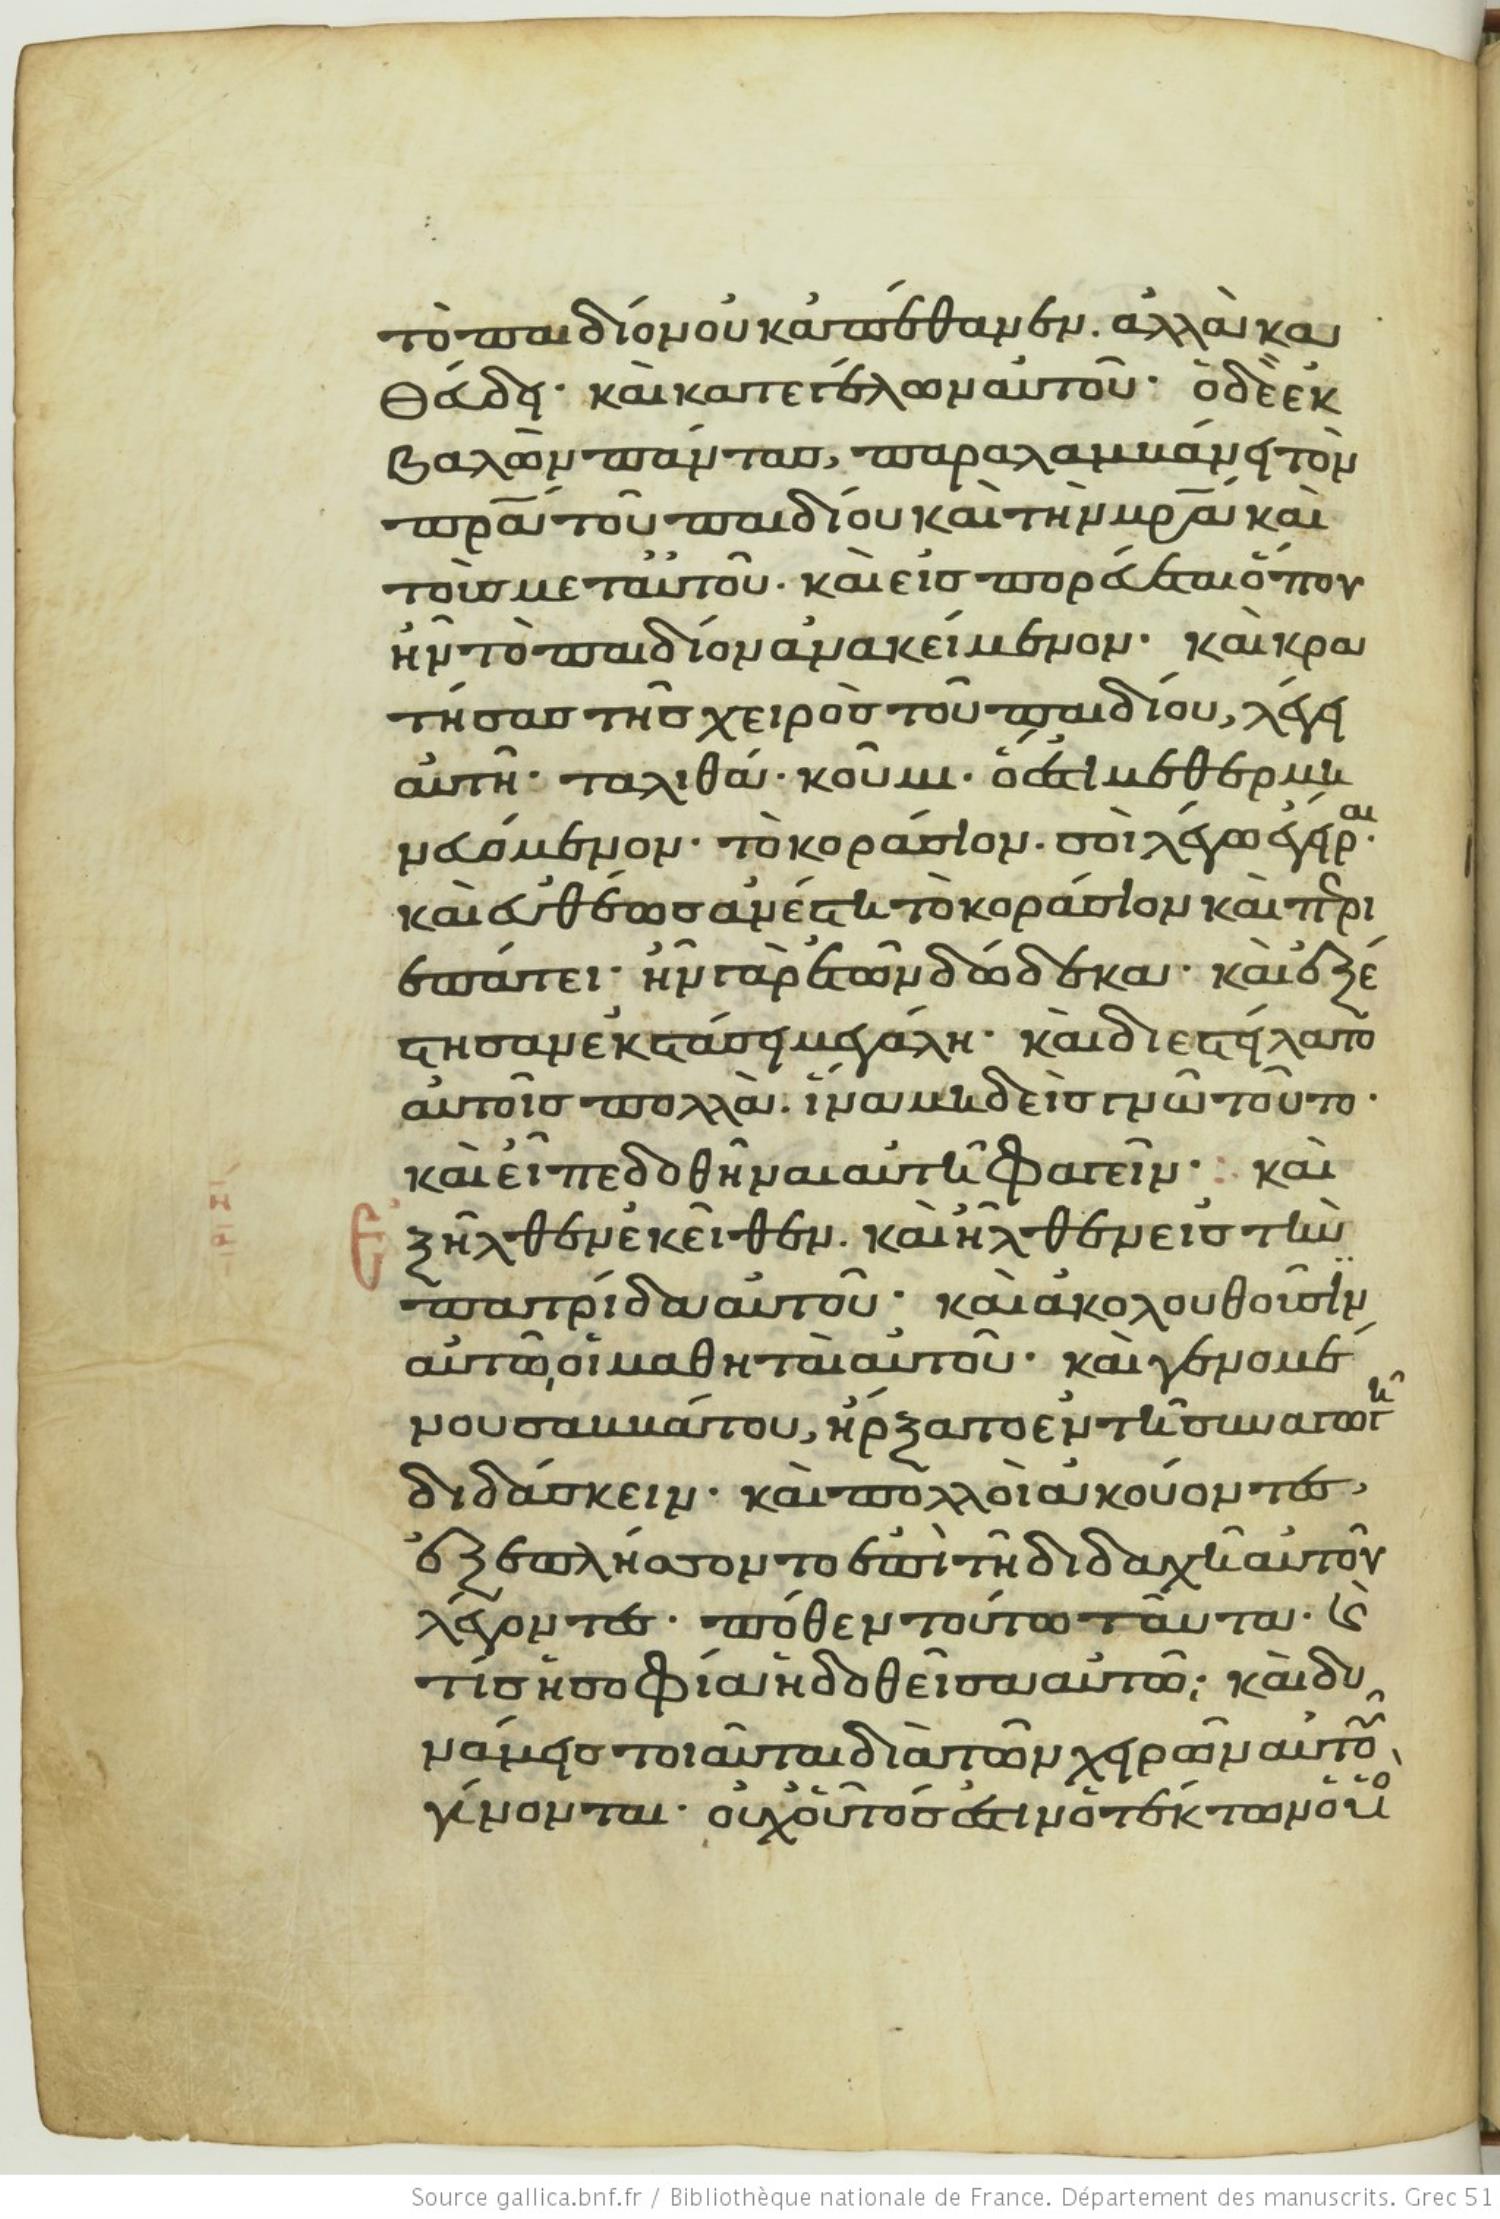 τὸ παιδίον οὐκ ἀπέθανεν. ἀλλὰ κα
θεύδει· καὶ κατεγέλων αὐτοῦ· ὁ δὲ ἐκ
βαλὼν πάντας, παραλαμβάνει τὸν
πρ̅α τοῦ παιδίου καὶ τὴν μρ̅α καὶ
τοὺς μετ αὐτοῦ. καὶ εἰσπορεύεται ὅπου
ἦν τὸ παιδίον ἀνακείμενον· καὶ κρα
τήσας τῆς χειρὸς τοῦ παιδίου, λέγει
αὐτῆ· ταλιθά· κοῦμι· ὅ ἐστι μεθερμη
νευόμενον· τὸ κοράσιον. σοὶ λέγω ἔγειραι·
καὶ εὐθέως ἀνέστη τὸ κοράσιον καὶ περι
επάτει· ἦν γὰρ ἐτῶν δώδεκα· καὶ ἐξέ
στησαν ἐκστάσει μεγάλη· καὶ διεστείλατο
αὐτοῖς πολλὰ. ἵνα μηδεὶς γνῶ τοῦτο·
καὶ εἶπε δοθῆναι αὐτῆ φαγεῖν· : καὶ
Ἐ ξῆλθεν ἐκεῖθεν. καὶ ἦλθεν εἰς τὴν
πατρίδα αὐτοῦ· καὶ ἀκολουθοῦσϊν
αὐτῶ, οἱ μαθηταὶ αὐτοῦ· καὶ γενομέ
νου σαββάτου, ἤρξατο ἐν τῆ συναγωγῆ
διδάσκειν· καὶ πολλοὶ ἀκούοντες,
ἐξεπλήσσοντο ἐπὶ τῆ διδαχῆ αὐτοῦ
λέγοντες· πόθεν τούτω ταῦτα· καὶ
τίς ἡ σοφία ἡ δοθεῖσα αὐτῶ; καὶ δυ
νάμεις τοιαῦται διὰ τῶν χειρῶν αὐτοῦ
γίνονται· οὐχ οὗτός ἐστιν ὁ τέκτων ὁ υἱὸ
Source gallica.bnf.fr / Bibliothèque nationale de France. Département des manuscrits. Grec 51